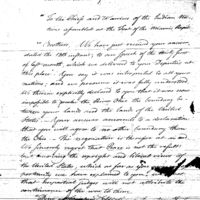 "To the Chiefs and Warriors of the Indian Na-
tions assembled at the foot of the Miamis Rapids
"Brothers, We have just received your answer
dated the 13th instant, to our speech of the
last month, which we delivered to your Deputies at
this place. You say it was interpreted to all your
and we presume it was fully understood.
We therein explicitly declared to you that it was now
impossible to make the River Ohio the boundary be-
tween your lands and the lands of the United
States. Your answer amounts to a declaration
that you will agree to no other boundary than
the Ohio. The negotiation is therefore at an end.
We sincerely regret that Peace is not the result;
but knowing the upright and liberal views of
the United States, which as far as you gave us an op-
portunity we have explained to you, we
that impartial judges will not attribute the
continuance of the war to them.